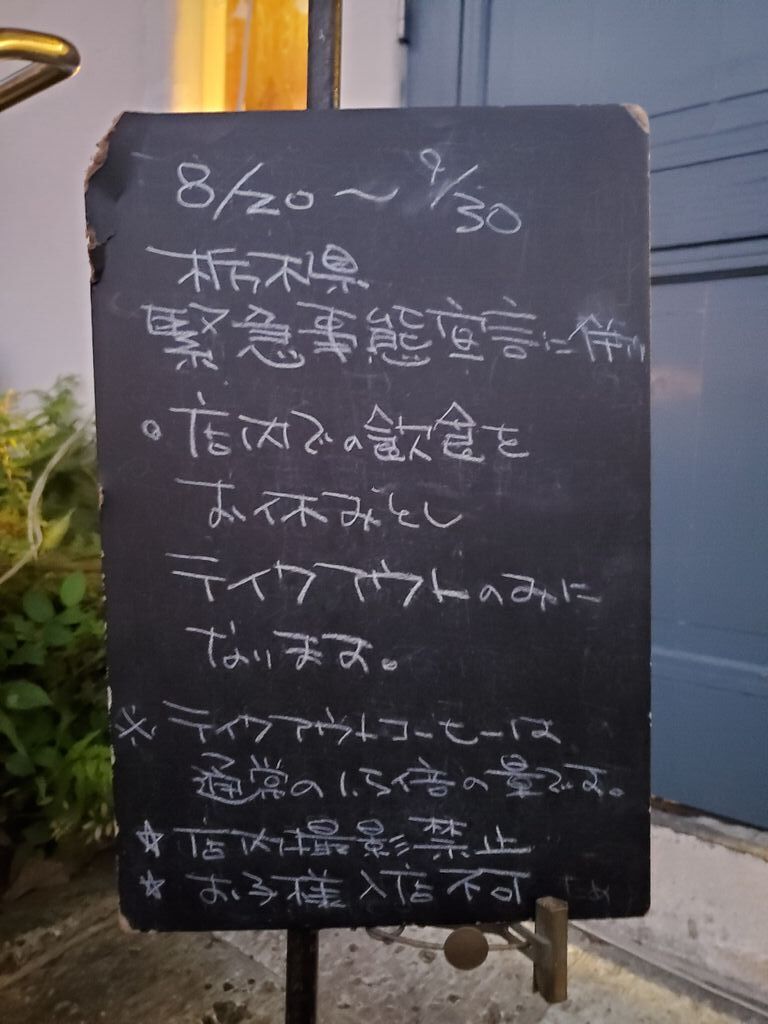 8/20～9/30
栃木県
緊急事態宣言に伴い
。店内での飲食を
お休みとし
テイクアウトのみに
なります。
※テイクアウトコーヒーは
通常の1.5倍の量です。
☆店内撮影禁止
☆お子様入店不可